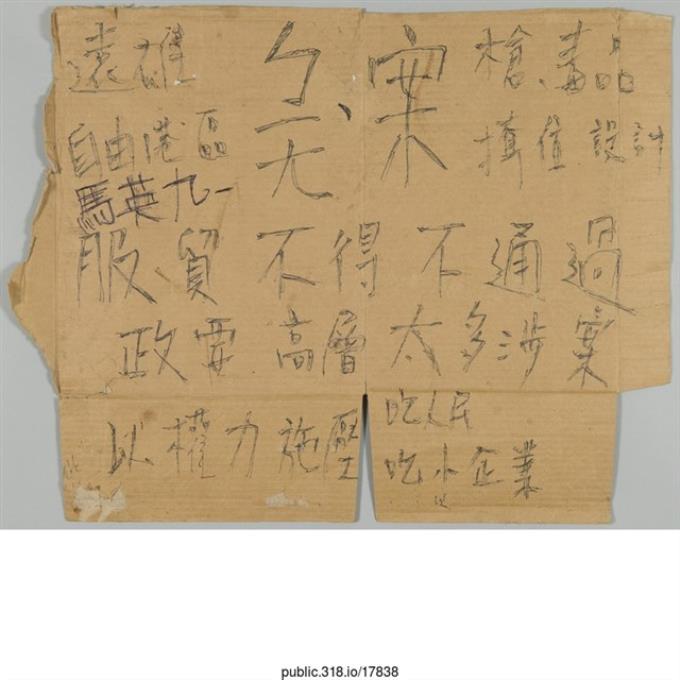 遠雄 案 槍、毒品
自由港區 設計
馬英九一
服貿不得不通過
政要高層太多涉案
以權力施壓 吃人民
吃小企業
public.318.io/17838